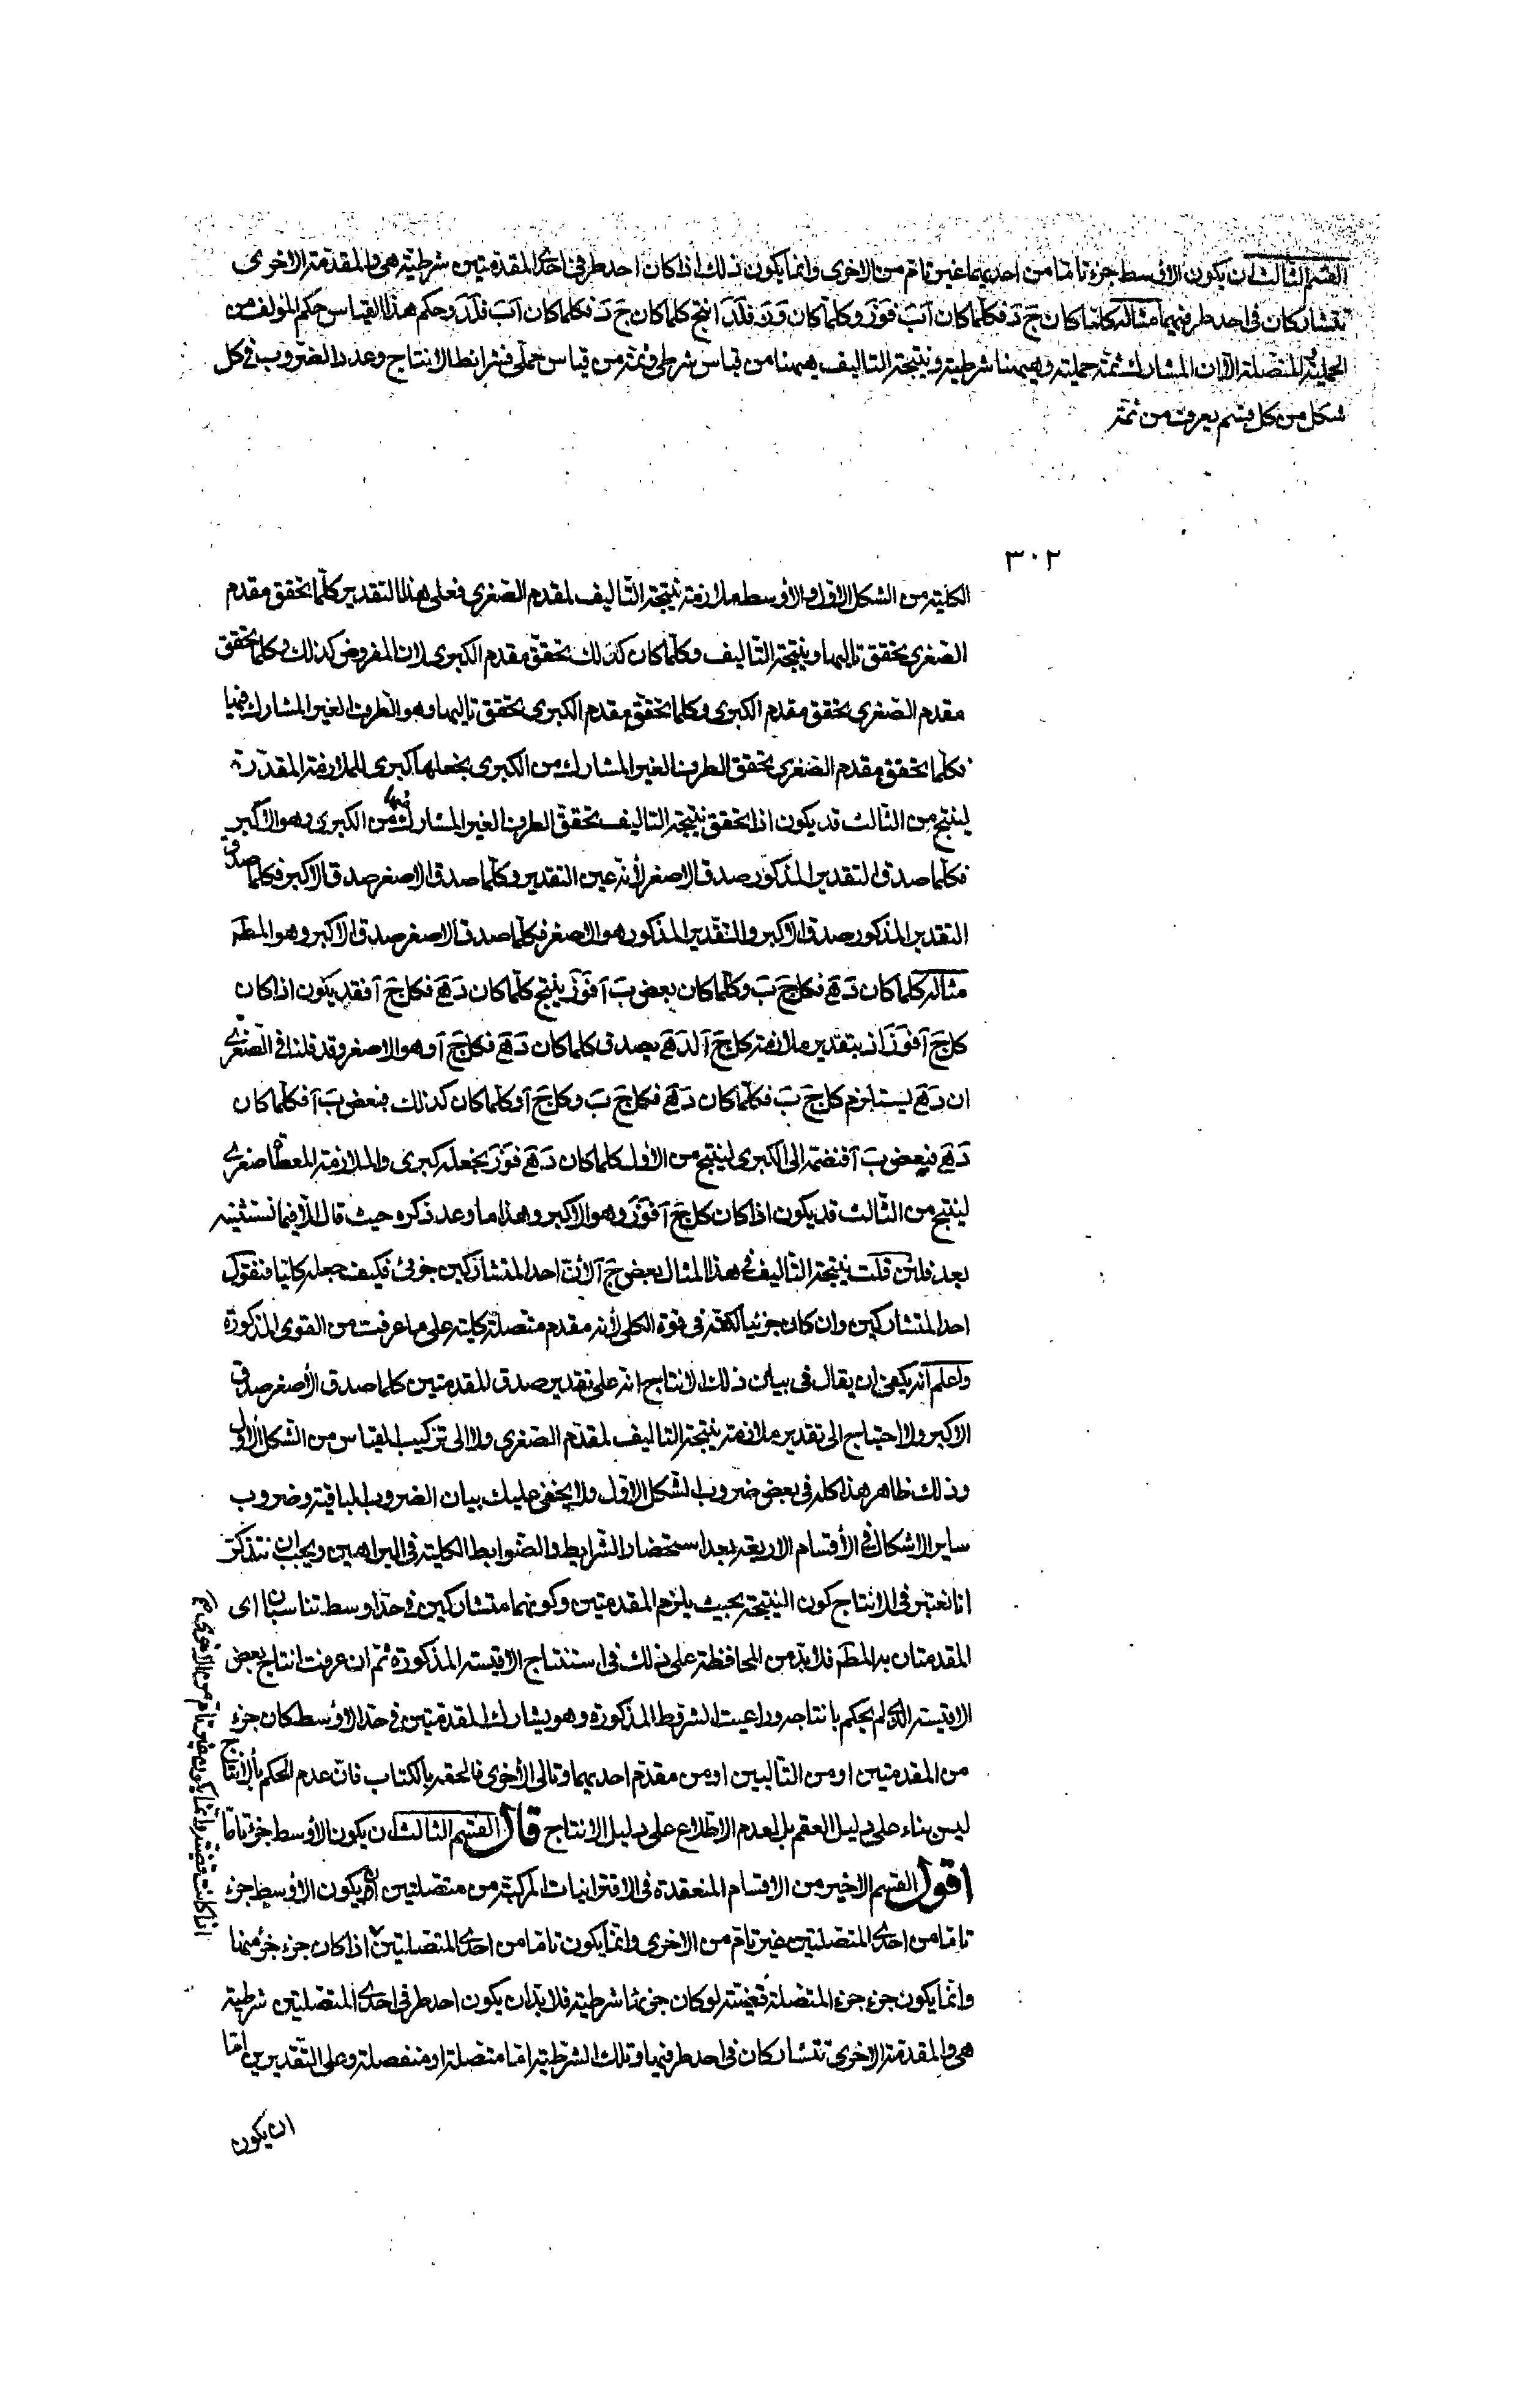 القسم الثالث ان يكون الاوسط جزء تاما من احديهما غير تام من الاخرى وانما يكون ذلك اذا كان احد طرفى احدى المقدمتين شرطية هى والمقدمة الاخرى
تتشاركان فى احد طرفيهما مثاله كلما كان جَ دَ فكلما كان اَبَ فوَزَ وكلما كان وَزَ فلَدَ انتج كلما كان جَ دَ فكلما كان اَبَ فلَدَ وحكم هذا القياس حكم المؤلف من
الحملية والمتصلة الا ان المشارك ثمة حملية وهيهنا شرطية ونتيجة التاليف هيهنا من قياس شرطى وثمة من قياس حملى فشرائط الانتاج وعدد الضروب فى كل
شكل من كل قسم يعرف من ثمة
٣٠٢
الكلية من الشكل الاول والاوسط ملازمة نتيجة التاليف لمقدم الصغرى فعلى هذا التقدير كلما تحقق مقدم
الصغرى تحقق تاليها ونتيجة التاليف وكلما كان كذلك تحقق مقدم الكبرى لان المفروض كذلك وكلما تحقق
مقدم الصغرى تحقق مقدم الكبرى وكلما تحقق مقدم الكبرى تحقق تاليها وهو الطرف الغير المشارك فيها
فكلما تحقق مقدم الصغرى تحقق الطرف الغير المشارك من الكبرى بجعلها كبرى للملازمة المقدرة
لينتج من الثالث قد يكون اذا تحقق نتيجة التاليف تحقق الطرف الغير المشارك من الكبرى وهو الاكبر
فكلما صدق التقدير المذكور صدق الاصغر لأنه عين التقدير وكلما صدق الاصغر صدق الاكبر فكلما صدق
التقدير المذكور صدق الاكبر والتقدير المذكور هو الاصغر فكلما صدق الاصغر صدق الاكبر وهو المطـ
مثاله كلما كان دَهَ فكل جَ بَ وكلما كان بعض بَ آ فوَزَ ينتج كلما كان دَهَ فكل جَ آ فقد يكون اذا كان
كل جَ آ فوَزَ اذ بتقدير ملازمة كل جَ آ لدَهَ يصدق كلما كان دَهَ فكل جَ آ وهو الاصغر وقد قلنا فى الصغرى
ان دَهَ يستلزم كل جَ بَ فكلما كان دَهَ فكل جَ بَ وكل جَ آ وكلما كان كذلك فبعض بَ آ فكلما كان
دَهَ فبعض بَ آ فنضمه الى الكبرى لينتج من الأول كلما كان دَهَ فوَزَ بجعله كبرى والملازمة المعطاة صغرى
لينتج من الثالث قد يكون اذا كان كل جَ آ فوَزَ وهو الاكبر وهذا ما وعد ذكره حيث قال الا فيما نستثنيه
بعد فلئن قلت نتيجة التاليف فى هذا المثال بعض جَ آ لأن احد المتشاركين جزئى فكيف جعله كليا فنقول
احد المتشاركين وان كان جزئيا لكنه فى قوة الكلى لأنه مقدم متصلة كلية على ما عرفت من القوى المذكورة
واعلم انه يكفى ان يقال فى بيان ذلك الانتاج انه على تقدير صدق المقدمتين كلما صدق الأصغر صدق
الاكبر ولا احتياج الى تقدير ملازمة نتيجة التاليف لمقدم الصغرى ولا الى تركيب القياس من الشكل الأول
وذلك ظاهر هذا كله فى بعض ضروب الشكل الاول ولا يخفى عليك بيان الضروب الباقية وضروب
ساير الاشكال فى الأقسام الاربعة بعد استحضار الشرايط والضوابط الكلية فى البراهين ويجب ان تتذكر
انا نعتبر فى الانتاج كون النتيجة بحيث يلزم المقدمتين وكونهما متشاركين فى حد اوسط تناسبان اى
المقدمتان به المطـ فلا بد من المحافظة على ذلك فى استنتاج الاقيسة المذكورة ثم ان عرفت انتاج بعض
الاقيسة التى لم يحكم بانتاجه وراعيت الشرط المذكورة وهو يشارك المقدمتين فى حد الاوسط كان جزء
من المقدمتين او من التاليين او من مقدم احديهما وتالى الأخرى فالحقه بالكتاب فان عدم الحكم بالانتاج
ليس بناء على دليل العقم بل لعدم الاطلاع على دليل الانتاج قال القسم الثالث ان يكون الأوسط جزء تاما
اقول القسم الاخير من الاقسام المنعقدة فى الاقترانيات المركبة من متصلتين ان يكون الاوسط جزء
تاما من احدى المتصلتين غير تام من الاخرى وانما يكون تاما من احدى المتصلتين اذا كان جزء جزء منها
وانما يكون جزء جزء المتصلة قضية لو كان جزئها شرطية فلا بد ان يكون احد طرفى احدى المتصلتين شرطية
هى والمقدمة الاخرى تتشاركان فى احد طرفيها وتلك الشرطية اما متصلة او منفصلة وعلى التقديرين اما
ان يكون
اذا كانت قضية وانما يكون غير تام من الاخرى